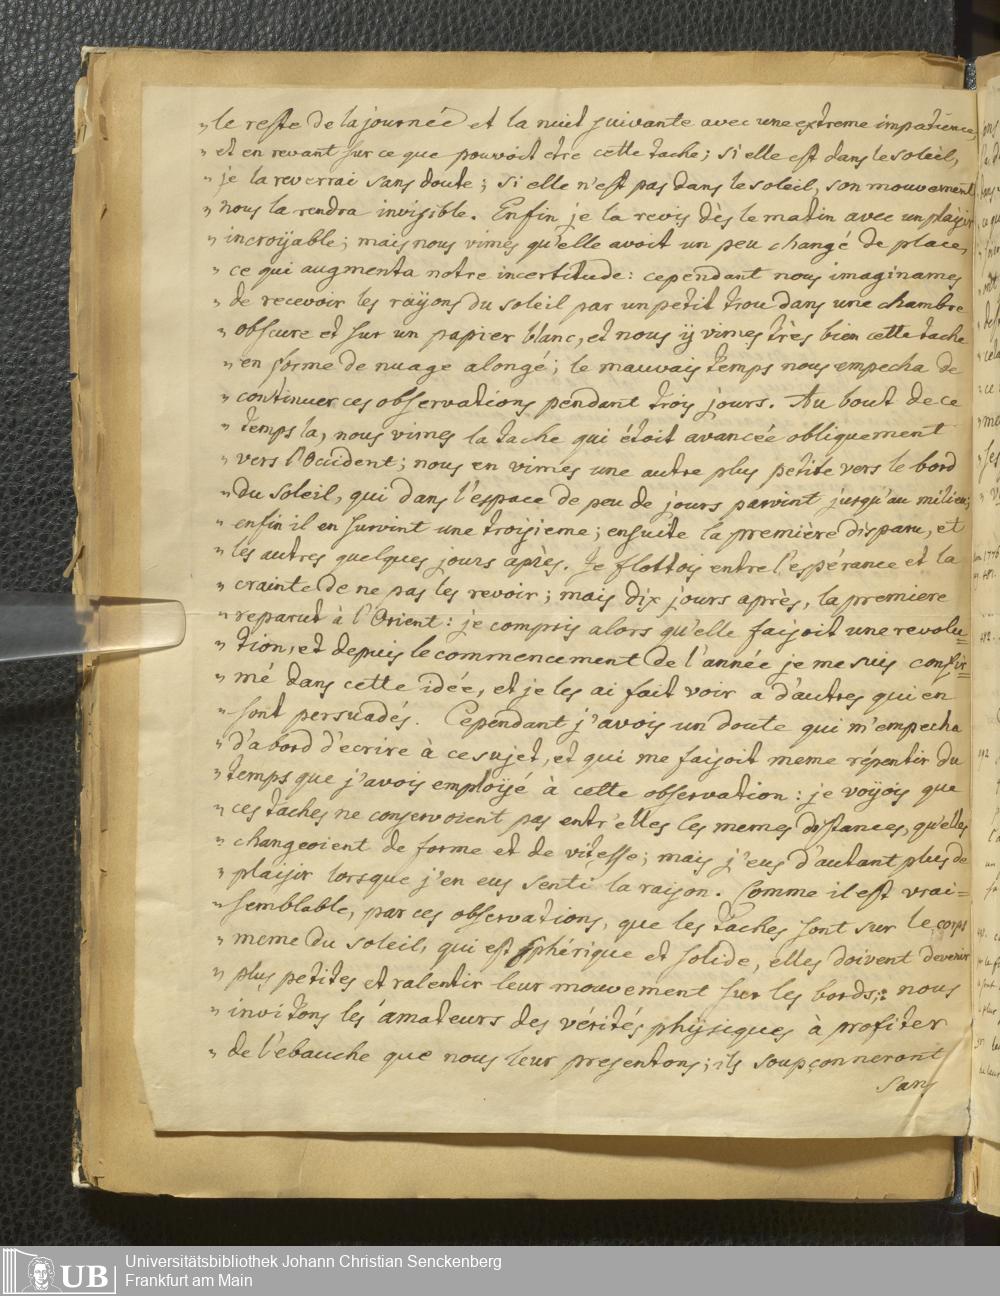 „ le reste de la journée et la nuit suivante avec une extreme impatience,
„ et en revant sur ce que pouvoit etre cette tache; si elle est dans le soleil,
„ je la reverrai sans doute; si elle n'est pas dans le soleil, son mouvement
„ nous la rendra invisible. Enfin je la revis dès le matin avec un plaisir
„ incroÿable; mais nous vimes qu'elle avoit un peu changé de place,
„ ce qui augmenta notre incertitude: cependant nous imaginames
„ de recevoir les raÿons du soleil par un petit trou dans une chambre
„ obscure et sur un papier blanc, et nous ÿ vimes très bien cette tache
„ en forme de nuage alongé; le mauvais temps nous empecha de
„ continuer ces observations pendant trois jours. Au bout de ce
„ temps la, nous vimes la tache qui étoit avancée obliquement
„ vers l'Occident; nous en vimes une autre plus petite vers le bord
„ du soleil, qui dans l'espace de peu de jours parvint jusqu'au milieu;
„ enfin il en survint une troisieme; ensuite la première disparu, et
„ les autres quelques jours après. Je flottois entre l'espérance et la
„ crainte de ne pas les revoir; mais dix jours après, la premiere
„ reparut à l'Orient: je compris alors qu'elle faisoit une revolu=
„ tion, et depuis le commencement de l'année je me suis confir=
„ mé dans cette idée, et je les ai fait voir a d'autres qui en
„ sont persuadés. Cependant j'avois un doute qui m'empecha
„ d'abord d'ecrire à ce sujet, et qui me faisoit meme répentir du
„ temps que j'avois emploÿé à cette observation: je voÿois que
„ ces taches ne conservoient pas entr'elles les memes distances, qu'elles
„ changeoient de forme et de vitesse; mais j'eus d'autant plus de
„ plaisir lorsque j'en eus senti la raison. Comme il est vrai=
„ semblable, par ces observations, que les taches sont sur le corps
„ meme du soleil, qui est sphérique et solide, elles doivent devenir
„ plus petites et ralentir leur mouvement sur les bords; nous
„ invitons les amateurs des vérités phÿsiques à profiter
„ de l'ebauche que nous leur presentons; ils soupçonneront
sans
UB
Universitätsbibliothek Johann Christian Senckenberg
Frankfurt am Main